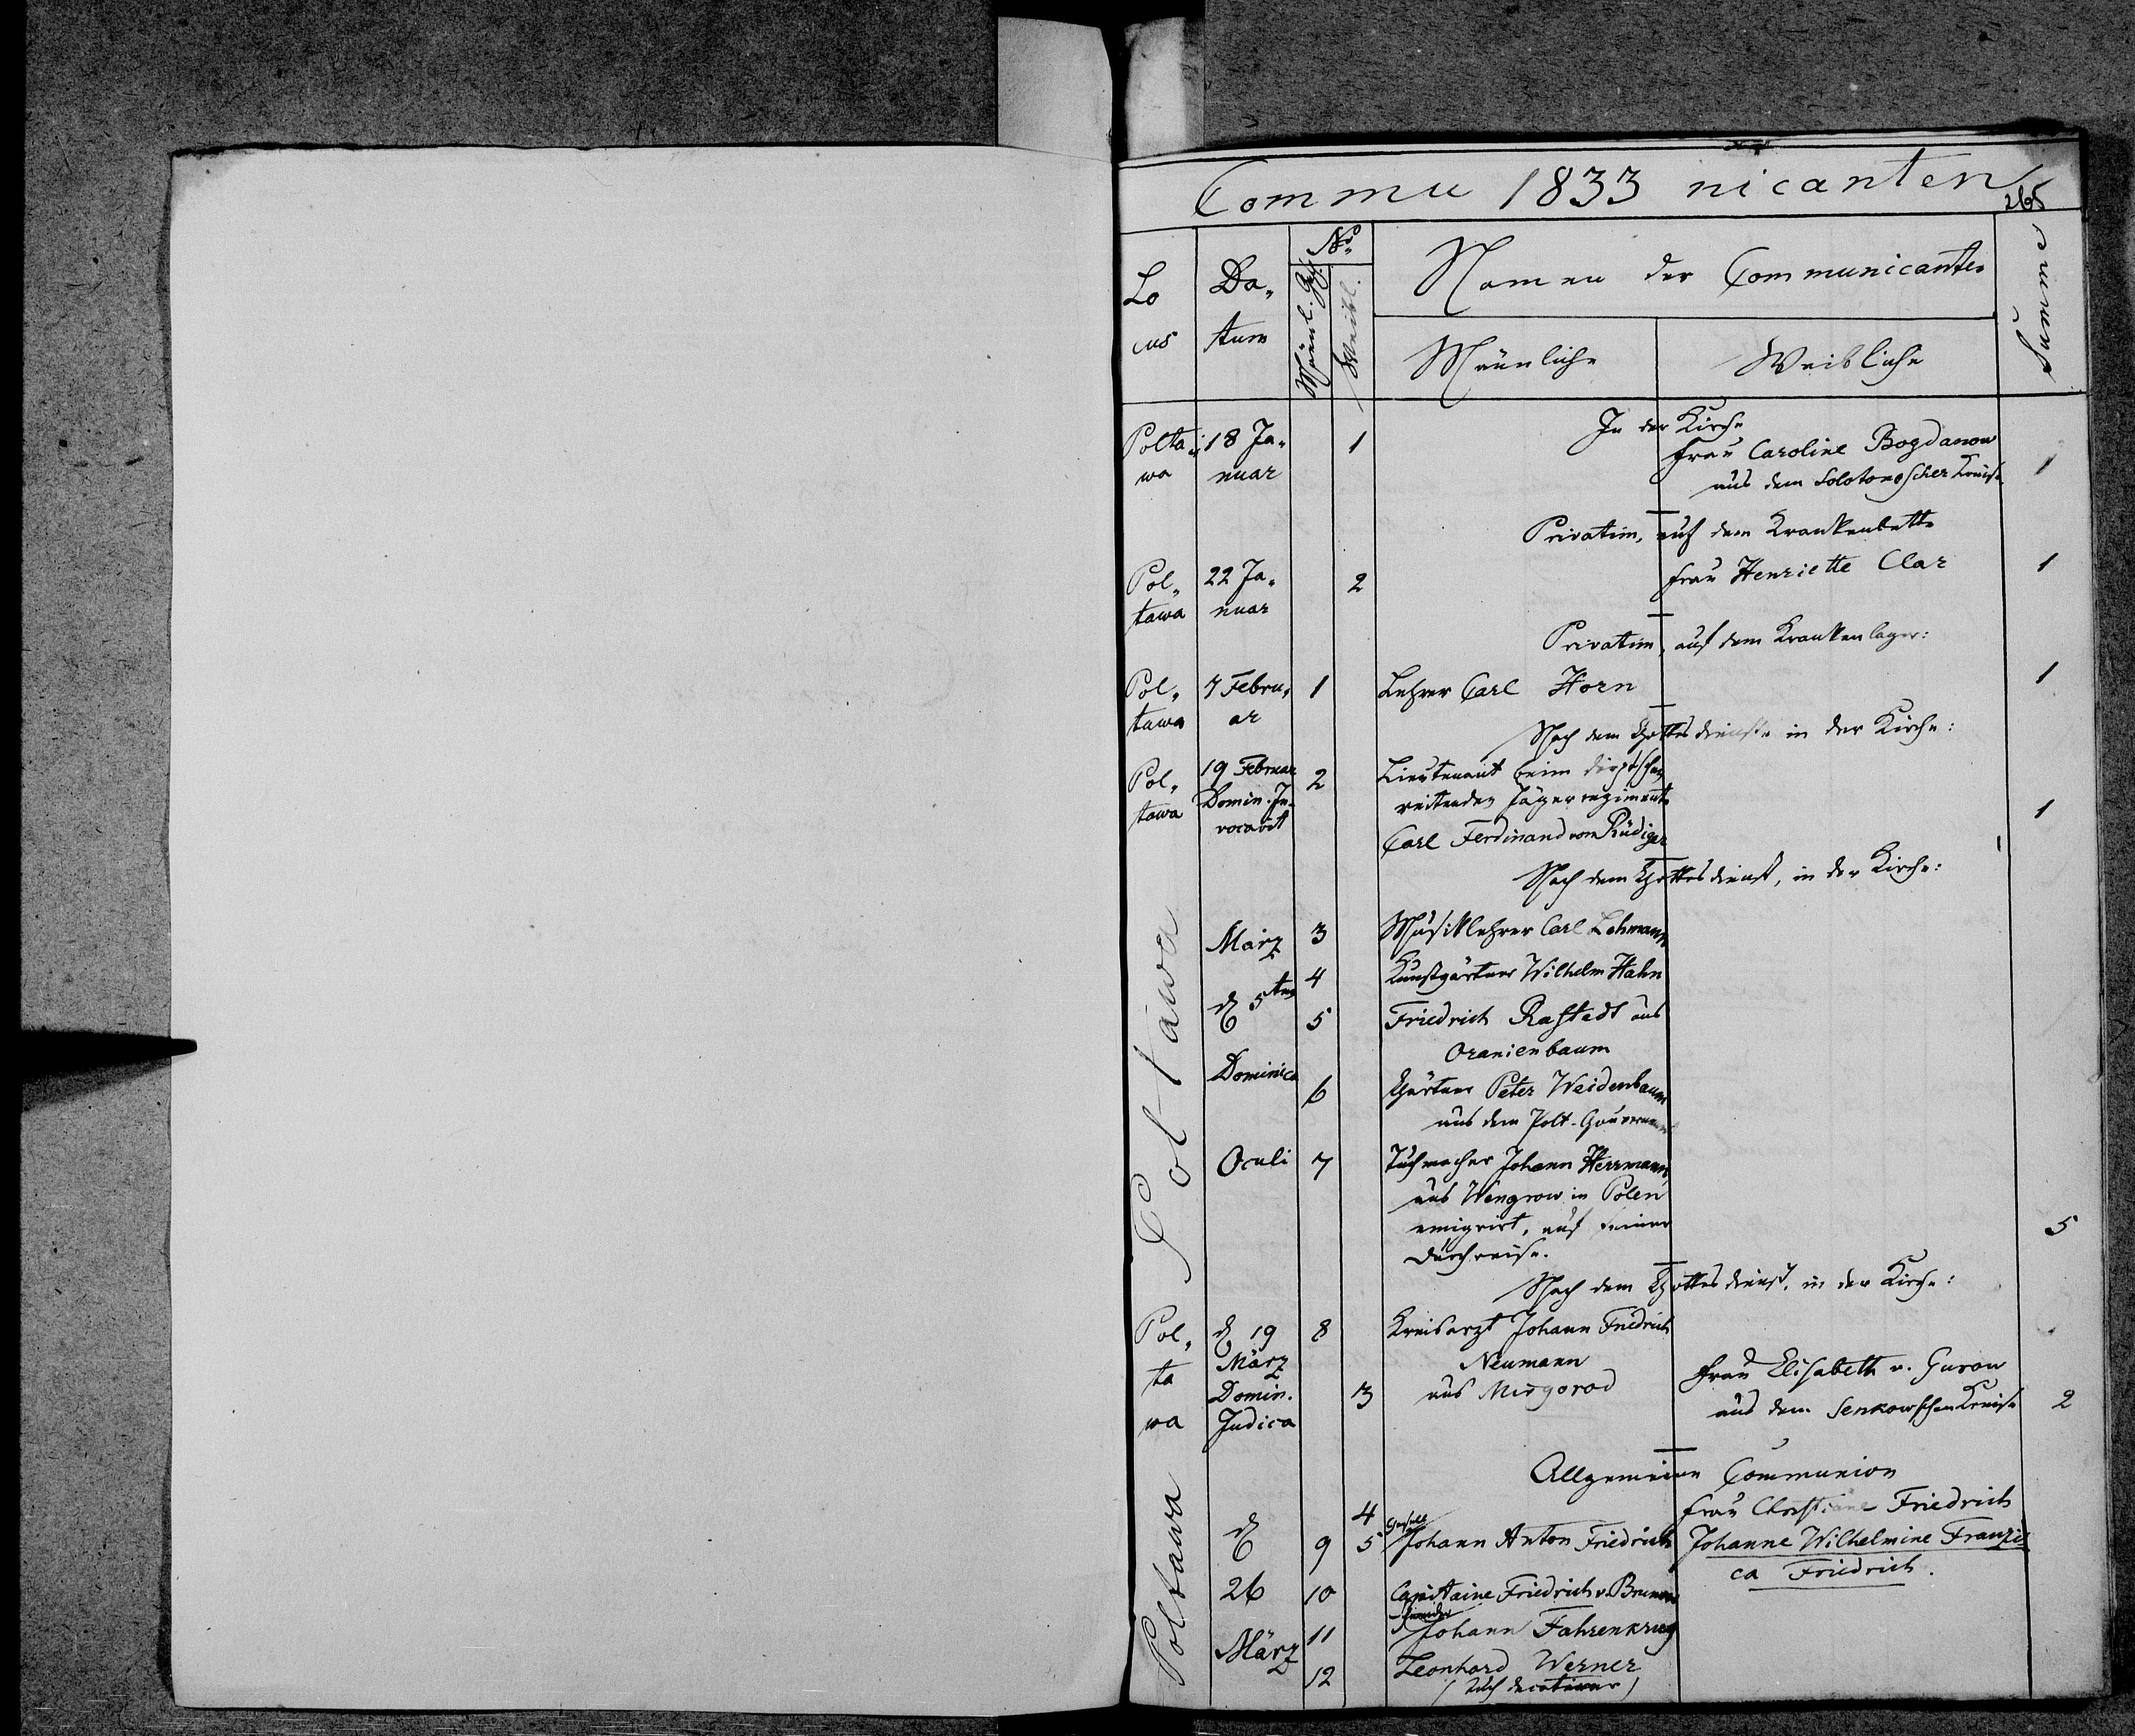 Commu 1833 nicanten
265
Lo
cus
Da„
tum
No
Männl. Gesch.
Weibl.
Namen der Communicanten
Männliche
Weibliche
Summe
In der Kirche
Polta„ 18 Ja„ 1 Frau Caroline Bogdanow
wa nuar aus dem Solotonoscher Kreise 1
Privatim, auf dem Krankenbette
Pol„ 22 Ja„ 2 Frau Henriette Clar 1
tawa nuar
Privatim, auf dem Krankenlager:
Pol„ 7 Febru„ 1 Lehrer Carl Horn 1
tawa ar
Nach dem Gottesdienste in der Kirche:
Pol„ 19 Februar 2 Lieutenant beim dörptschen
tawa Domin. In„ reitenden Jägerregimente 1
vocavit Carl Ferdinand von Rüdiger
Nach dem Gottesdienst, in der Kirche:
Poltawa
März 3 Musiklehrer Carl Lehmann
4 Kunstgärtner Wilhelm Hahn
d 5ten
5 Friedrich Rastedt aus
Oranienbaum
Dominica
6 Gärtner Peter Weidenbaum
aus dem Polt. Gouvernement
Oculi 7 Tuchmacher Johann Herrmann,
aus Wengrow in Polen
emigrirt, auf seiner 5
Durchreise.
Nach dem Gottesdienst, in der Kirche:
Pol„ d 19 8 Kreisarzt Johann Friedrich
ta März Neumann Frau Elisabeth v. Gurow
wa Domin. 3 aus Mirgorod aus dem Senkowschen Kreise 2
Judica
Allgemeine Communion
Poltawa
4 Frau Christiane Friedrich
d 9 5 Johann Anton Friedrich Johanne Wilhelmine Franzis
ca Friedrich.
26 10 Capitaine Friedrich v. Brunow
März 11 Johann Fahrenkrug
12 Leonhard Werner